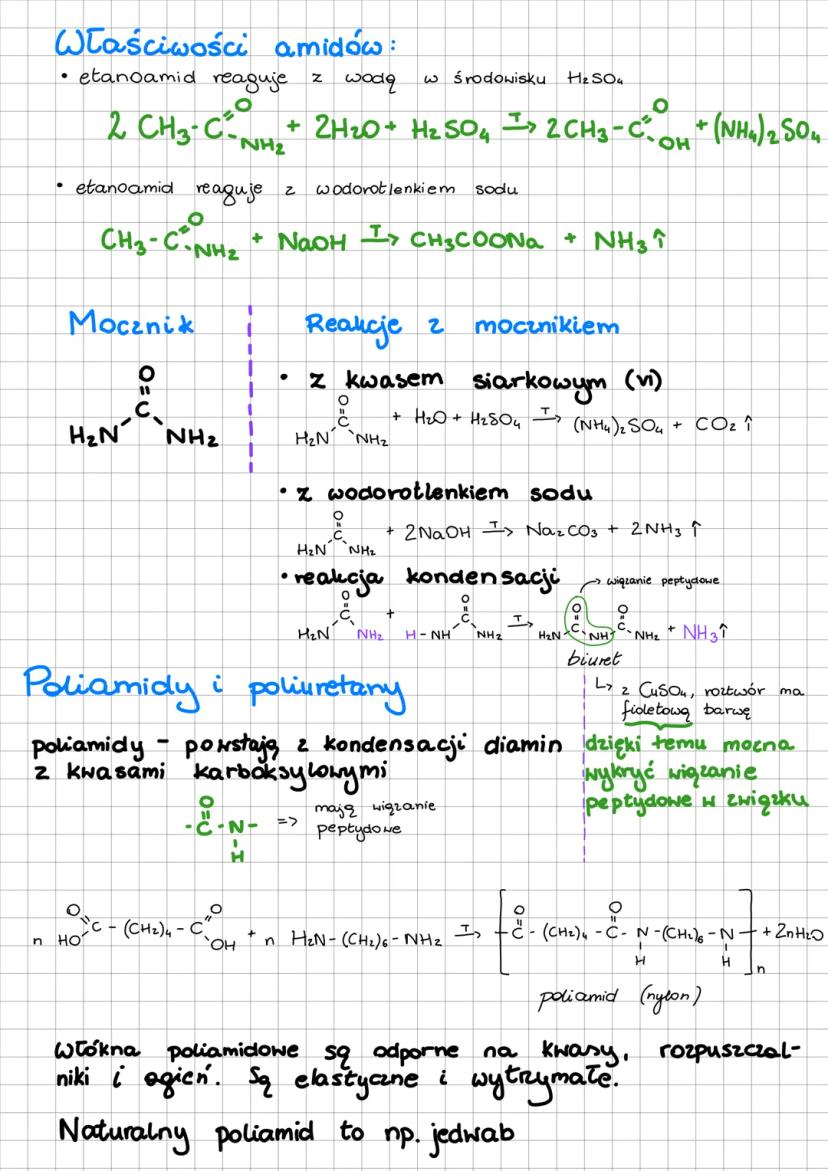 Właściwości amidów:
• etanoamid reaguje z wodą w środowisku H₂SO₄
2 CH₃-C(=O)-NH₂ + 2H₂O + H₂SO₄ –T→ 2CH₃-C(=O)-OH + (NH₄)₂SO₄
• etanoamid reaguje z wodorotlenkiem sodu
CH₃-C(=O)-NH₂ + NaOH –T→ CH₃COONa + NH₃↑
Mocznik
H₂N-C(=O)-NH₂
Reakcje z mocznikiem
• z kwasem siarkowym (VI)
H₂N-C(=O)-NH₂ + H₂O + H₂SO₄ –T→ (NH₄)₂SO₄ + CO₂↑
• z wodorotlenkiem sodu
H₂N-C(=O)-NH₂ + 2NaOH –T→ Na₂CO₃ + 2NH₃↑
• reakcja kondensacji
→ wiązanie peptydowe
H₂N-C(=O)-NH₂ + H-NH-C(=O)-NH₂ –T→ H₂N-C(=O)-NH-C(=O)-NH₂ + NH₃↑
biuret
↳ z CuSO₄, roztwór ma
fioletową barwę
dzięki temu mozna
wykryć wiązanie
peptydowe w związku
Poliamidy i poliuretany
poliamidy - powstają z kondensacji diamin
z kwasami karboksylowymi
-C(=O)-N(H)- => mają wiązanie
peptydowe
n HO-C(=O)-(CH₂)₄-C(=O)-OH + n H₂N-(CH₂)₆-NH₂ –T→ [-C(=O)-(CH₂)₄-C(=O)-N(H)-(CH₂)₆-N(H)-]n + 2nH₂O
poliamid (nylon)
Włókna poliamidowe są odporne na kwasy, rozpuszczal-
niki i ogień. Są elastyczne i wytrzymałe.
Naturalny poliamid to np. jedwab